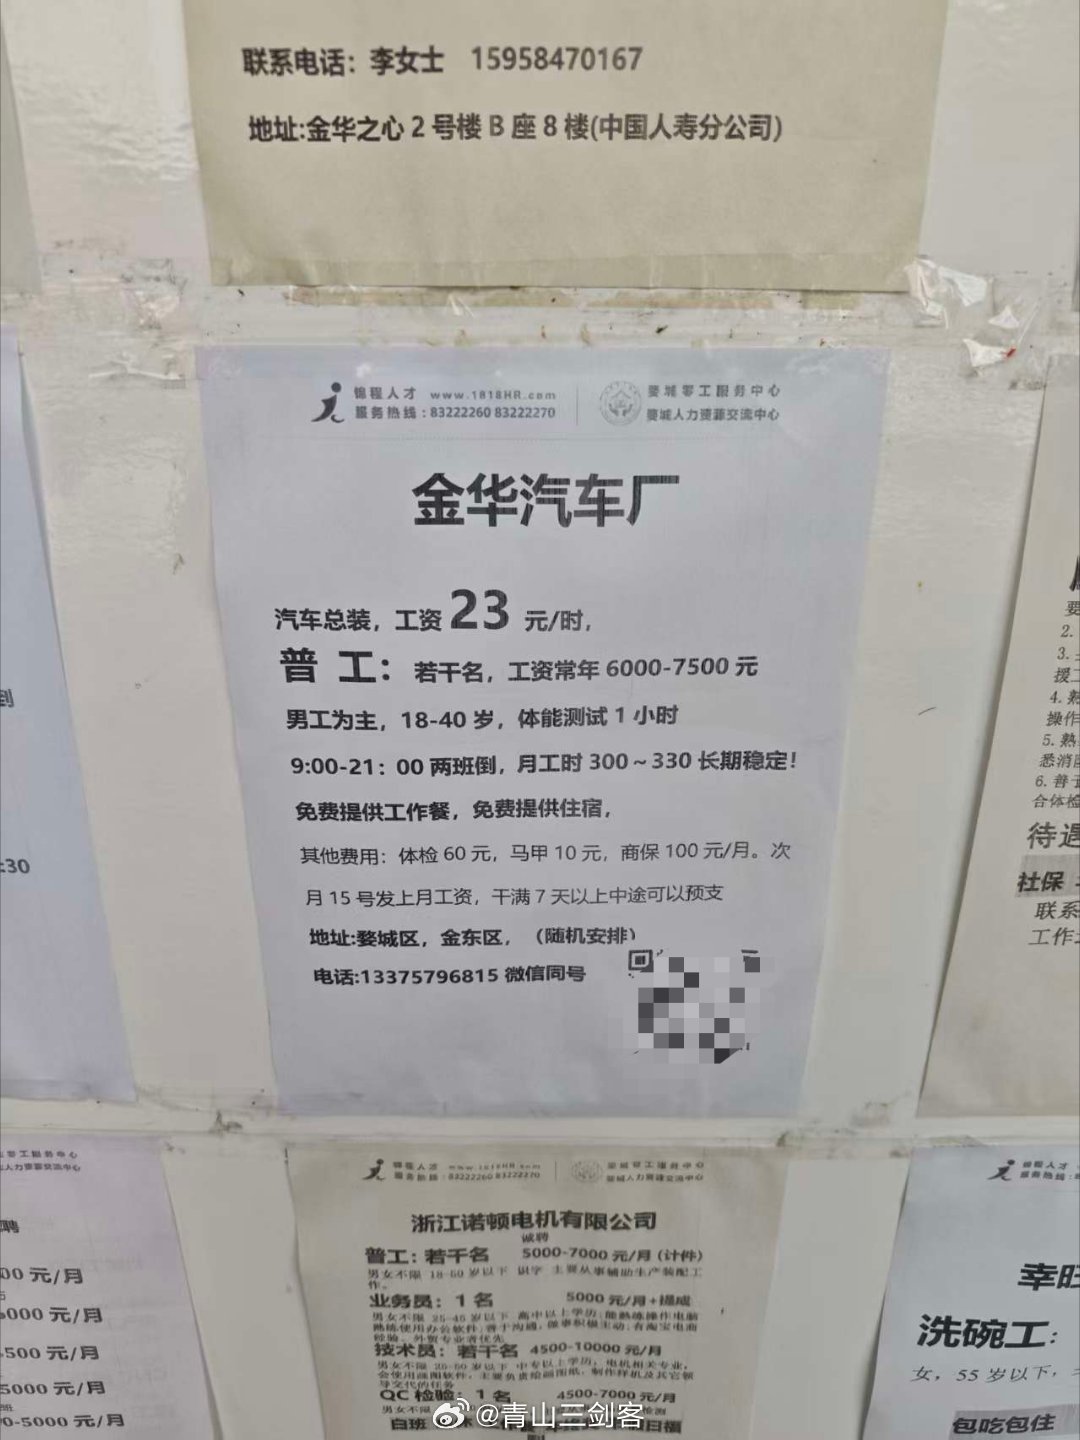 联系电话：李女士 15958470167
地址:金华之心2号楼B座8楼(中国人寿分公司)
锦程人才 www.1818HR.com
服务热线：83222260 83222270
婺城零工服务中心
婺城人力资源交流中心
金华汽车厂
汽车总装，工资23元/时，
普 工：若干名，工资常年6000-7500元
男工为主，18-40岁，体能测试1小时
9:00-21：00两班倒，月工时300～330长期稳定！
免费提供工作餐，免费提供住宿，
其他费用：体检60元，马甲10元，商保100元/月。次
月15号发上月工资，干满7天以上中途可以预支
地址:婺城区，金东区，（随机安排）
电话:13375796815微信同号
倒
:30
要
2.
3.
援
4.熟
操作
5.熟
悉消
6.善于
合体检
待遇
社保
联系
工作
锦程人才 www.1818HR.com
服务热线：83222260 83222270
婺城零工服务中心
婺城人力资源交流中心
浙江诺顿电机有限公司
诚聘
普工：若干名 5000-7000元/月（计件）
男女不限 18-50岁以下 识字 主要从事辅助生产装配工
作。
业务员：1名 5000元/月+提成
男女不限 25-45岁以下 高中以上学历;能熟练操作电脑
熟练使用办公软件;善于沟通,做事积极主动;有淘宝电商
经验、外贸专业者优先
技术员：若干名 4500-10000元/月
男女不限 20-50岁以下 中专以上学历，电机相关专业，
会使用画图软件，主要负责绘画图纸，制作样机及其它领
导交代的任务
QC检验：1名 4500-7000元/月
男女不限
检测
白班
日福
零工服务中心
人力资源交流中心
聘
00元/月
000元/月
500元/月
5000元/月
0-5000元/月
锦程人才
服务热线：
幸旺
洗碗工：
女，55岁以下，
包吃包住
@青山三剑客